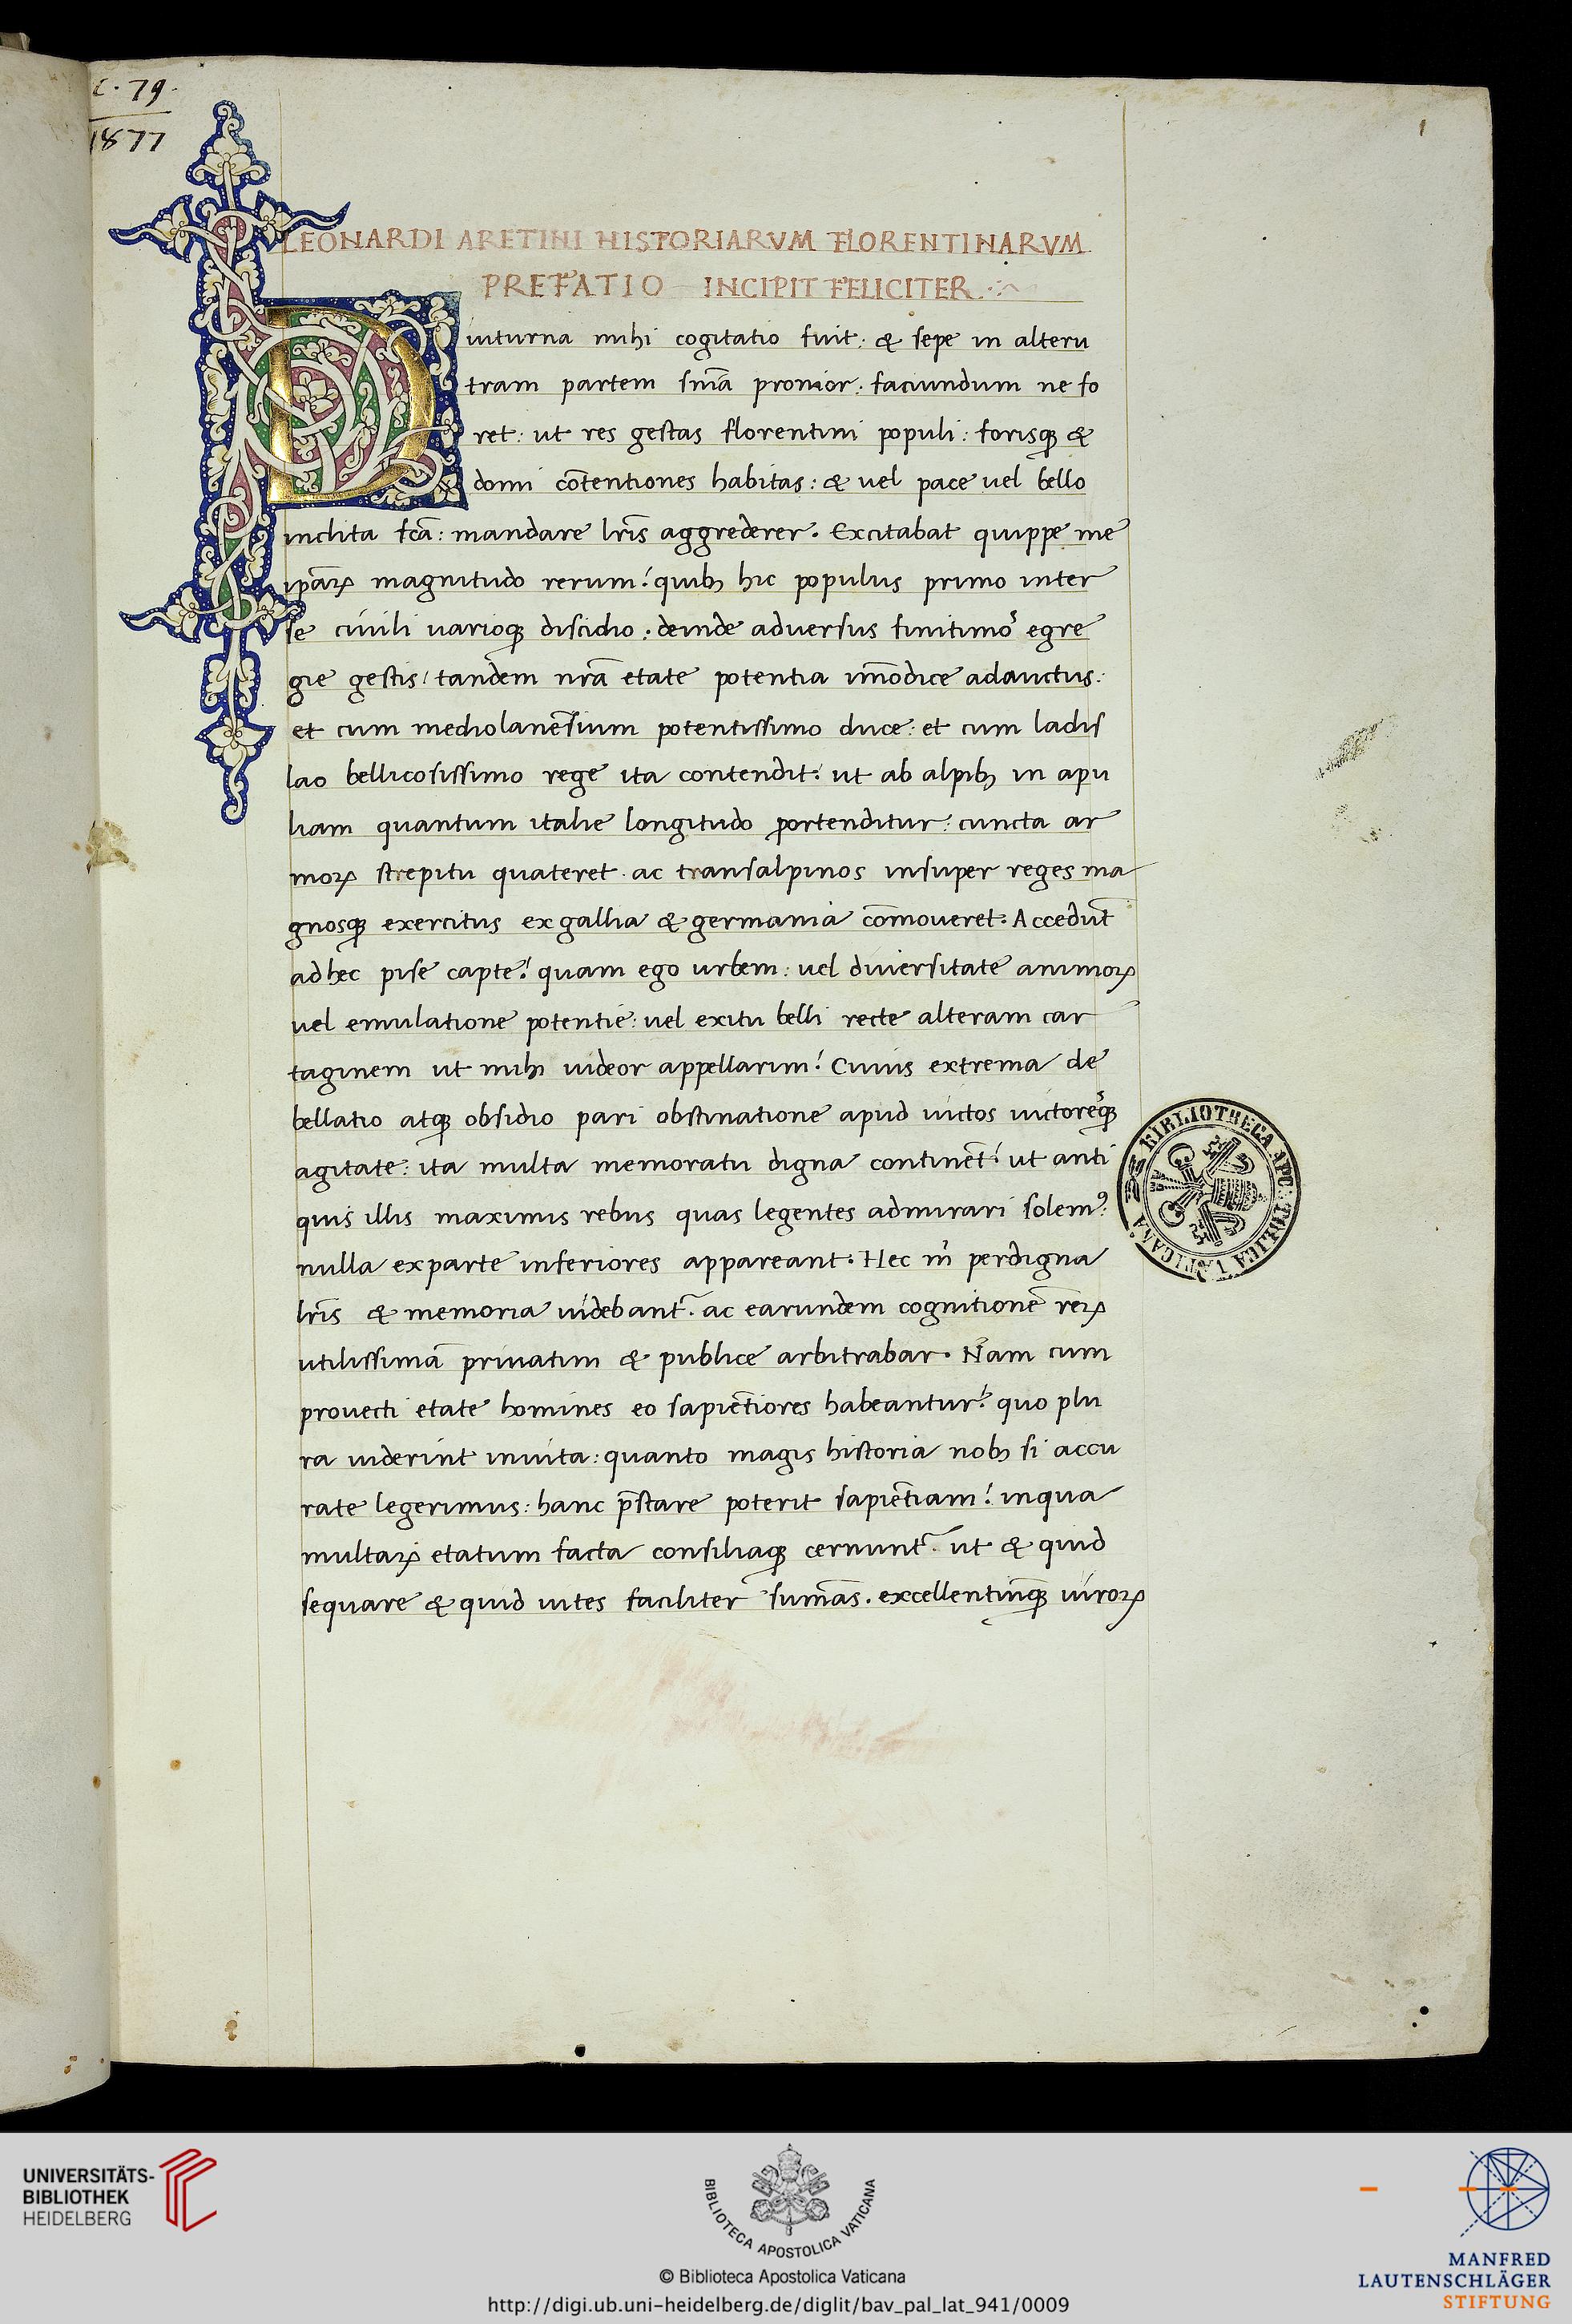 C. 79.
1877
1
LEONARDI ARETINI HISTORIARVM FLORENTINARVM
PREFATIO INCIPIT FELICITER
Diuturna mihi cogitatio fuit: & sepe in alteru
tram partem sn̄ia pronior: faciundum ne fo
ret: ut res gestas florentini populi: forisqꝫ &
domi cōtentiones habitas: & uel pace uel bello
inclita fcā: mandare lr̄is aggrederer. Excitabat quippe me
ipāꝝ magnitudo rerum: quibꝫ hic populus primo inter
se ciuili uarioqꝫ discidio: deinde aduersus finitimoˀ egre
gie gestis/ tandem nr̄a etate potentia īmodice adauctus:
et cum mediolanēsium potentissimo duce: et cum ladis
lao bellicosissimo rege ita contendit: ut ab alpibꝫ in apu
liam quantum italie longitudo portenditur: cuncta ar
moꝝ strepitu quateret. ac transalpinos insuper reges ma
gnosqꝫ exercitus ex gallia & germania cōmoueret. Accedūt
ad hec pise capte: quam ego urbem: uel diuersitate animoꝝ
uel emulatione potentie: uel exitu belli recte alteram car
taginem ut mihi uideor appellarim: Cuius extrema de
bellatio atqꝫ obsidio pari obstinatione apud uictos uictoreˀqꝫ
agitate: ita multa memoratu digna continēt: ut anti
quis illis maximis rebus quas legentes admirari solemꝰ:
nulla ex parte inferiores appareant. Hec m̄ perdigna
lr̄is & memoria uidebant᷑. ac earundem cognitionē reꝝ
utilissimā priuatim & publice arbitrabar. Nam cum
prouecti etate homines eo sapiētiores habeantur: quo plu
ra uiderint inuita: quanto magis historia nobꝫ si accu
rate legerimus: hanc p̄stare poterit sapiētiam: inqua
multaꝝ etatum facta consiliaqꝫ cernunt᷑. ut & quid
sequare & quid uites faciliter sumās. excellentiūqꝫ uiroꝝ
BIBLIOTHECA APOSTOLICA VATICANA
UNIVERSITÄTS-
BIBLIOTHEK
HEIDELBERG
BIBLIOTECA APOSTOLICA VATICANA
© Biblioteca Apostolica Vaticana
http://digi.ub.uni-heidelberg.de/diglit/bav_pal_lat_941/0009
MANFRED
LAUTENSCHLÄGER
STIFTUNG